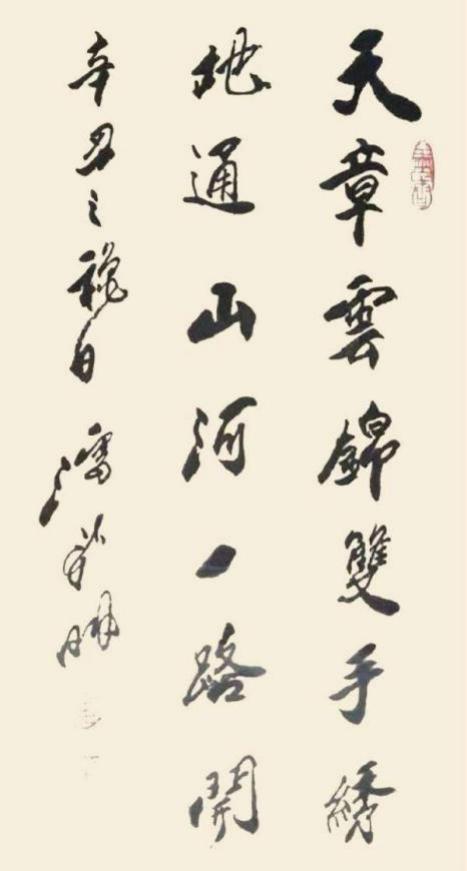 天章雲錦雙手繡
地通山河一路開
辛丑之穐日潘